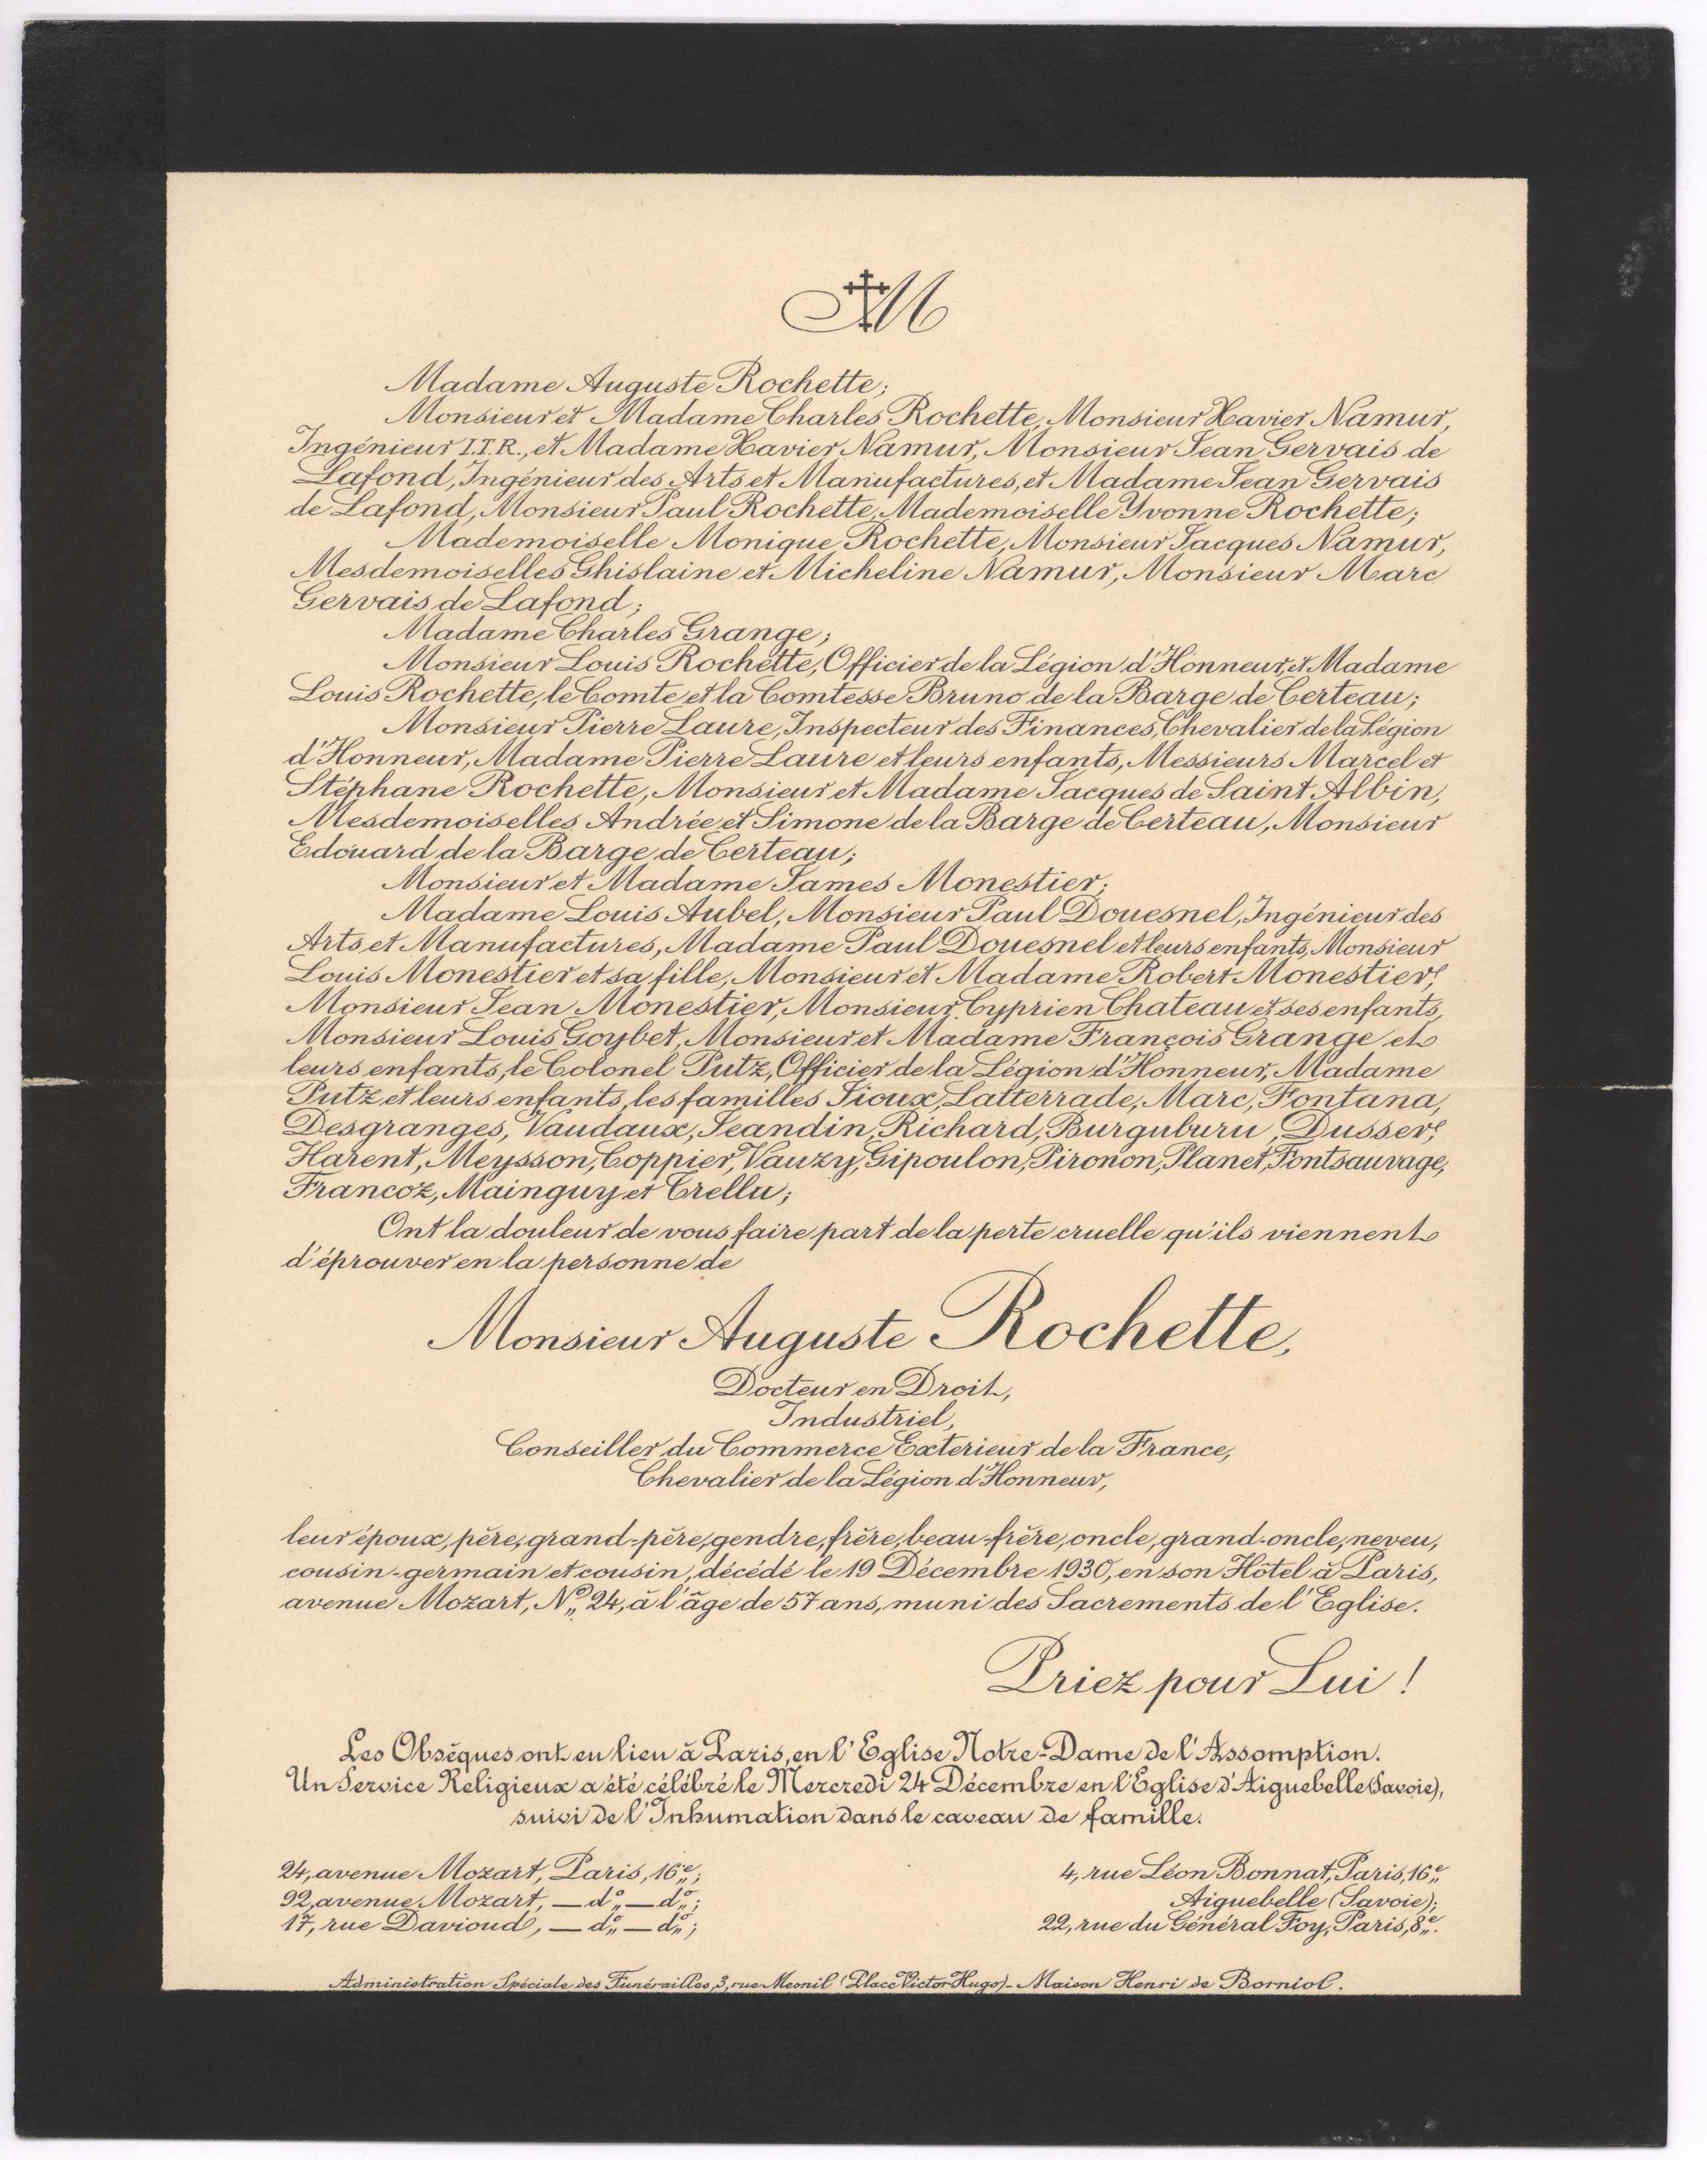 M
Madame Auguste Rochette;
Monsieur et Madame Charles Rochette, Monsieur Xavier Namur,
Ingénieur I.T.R., et Madame Xavier Namur, Monsieur Jean Gervais de
Lafond, Ingénieur des Arts et Manufactures, et Madame Jean Gervais
de Lafond, Monsieur Paul Rochette, Mademoiselle Yvonne Rochette;
Mademoiselle Monique Rochette, Monsieur Jacques Namur,
Mesdemoiselles Ghislaine et Micheline Namur, Monsieur Marc
Gervais de Lafond;
Madame Charles Grange;
Monsieur Louis Rochette, Officier de la Légion d'Honneur, et Madame
Louis Rochette, le Comte et la Comtesse Bruno de la Barge de Certeau;
Monsieur Pierre Laure, Inspecteur des Finances, Chevalier de la Légion
d'Honneur, Madame Pierre Laure et leurs enfants, Messieurs Marcel et
Stéphane Rochette, Monsieur et Madame Jacques de Saint Albin,
Mesdemoiselles Andrée et Simone de la Barge de Certeau, Monsieur
Edouard de la Barge de Certeau;
Monsieur et Madame James Monestier;
Madame Louis Aubel, Monsieur Paul Douesnel, Ingénieur des
Arts et Manufactures, Madame Paul Douesnel et leurs enfants, Monsieur
Louis Monestier et sa fille, Monsieur et Madame Robert Monestier,
Monsieur Jean Monestier, Monsieur Cyprien Chateau et ses enfants,
Monsieur Louis Goybet, Monsieur et Madame François Grange et
leurs enfants, le Colonel Putz, Officier de la Légion d'Honneur, Madame
Putz et leurs enfants, les familles Sioux, Latterrade, Marc, Fontana,
Desgranges, Vaudaux, Jeandin, Richard, Burguburu, Dusser,
Harent, Meysson, Coppier, Vauzy, Gipoulon, Pironon, Planet, Fontsauvage,
Francoz, Mainguy et Crellu;
Ont la douleur de vous faire part de la perte cruelle qu'ils viennent
d'éprouver en la personne de
Monsieur Auguste Rochette,
Docteur en Droit,
Industriel,
Conseiller du Commerce Exterieur de la France,
Chevalier de la Légion d'Honneur,
leur époux, père, grand-père, gendre, frère, beau-frère, oncle, grand-oncle, neveu,
cousin-germain et cousin, décédé le 19 Décembre 1930, en son Hôtel à Paris,
avenue Mozart, Nº 24, à l'âge de 57 ans, muni des Sacrements de l'Eglise.
Priez pour Lui !
Les Obsèques ont eu lieu à Paris, en l'Eglise Notre-Dame de l'Assomption.
Un Service Religieux a été célébré le Mercredi 24 Décembre en l'Eglise d'Aiguebelle (Savoie),
suivi de l'Inhumation dans le caveau de famille.
24, avenue Mozart, Paris, 16e;
92, avenue Mozart, — dº — dº;
17, rue Davioud, — dº — dº;
4, rue Léon Bonnat, Paris, 16e
Aiguebelle (Savoie);
22, rue du Général Foy, Paris, 8e.
Administration Spéciale des Funérailles, 3, rue Mesnil (Place Victor Hugo) - Maison Henri de Borniol.